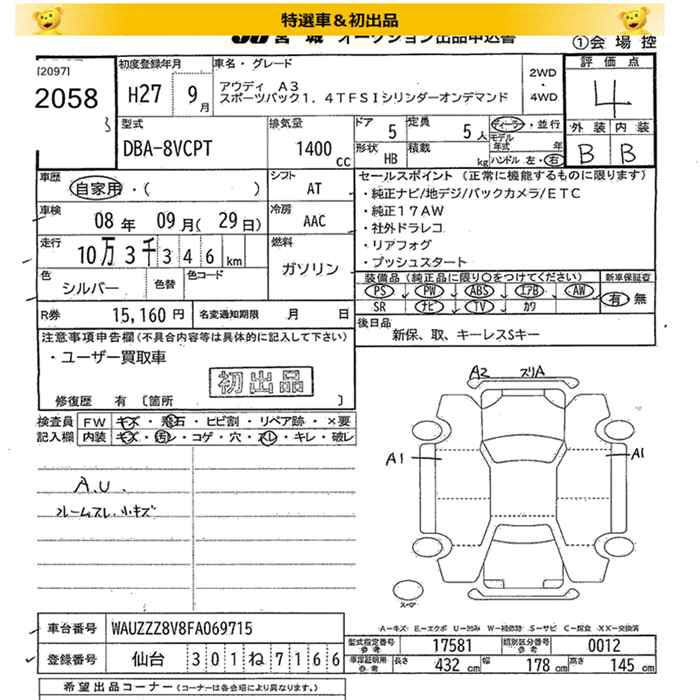 特選車&初出品
宮城 オークション出品申込書
①会場控
[2097]
2058
3
初度登録年月
H27 9月
車名・グレード
アウディ A3
スポーツバック1.4TFSIシリンダーオンデマンド
2WD
・
4WD
評価点
4
外装 内装
B B
型式
DBA-8VCPT
排気量
1400 cc
ドア 5
定員 5人
形状 HB
積載 kg
ディーラー・並行
モデル年式 年
ハンドル 左・右
車歴
自家用・( )
シフト
AT
車検
08年 09月(29日)
冷房
AAC
走行
10万3千346km
燃料
ガソリン
色
シルバー
色替
色コード
R券 15,160円
名変通知期限 月 日
セールスポイント(正常に機能するものに限ります)
・純正ナビ/地デジ/バックカメラ/ETC
・純正17AW
・社外ドラレコ
・リアフォグ
・プッシュスタート
装備品(純正品に限り○をつけてください)
新車保証書
PS PW ABS エアB AW
有・無
SR ナビ TV カワ
後日品
新保、取、キーレスSキー
注意事項申告欄(不具合内容等は具体的に記入して下さい)
・ユーザー買取車
初出品
修復歴 有 〔箇所 〕
検査員記入欄
FW キズ・飛石・ヒビ割・リペア跡・×要
内装 キズ・汚レ・コゲ・穴・スレ・キレ・破レ
A.U.
ルームスレ、小キズ
A2 ズリA
A1 A1
スペア
A…キズ E…エクボ U…凹み W…補修跡 S…サビ C…腐食 ××…交換済
車台番号 WAUZZZ8V8FA069715
登録番号 仙台 301ね7166
型式指定番号参考 17581
類別区分番号参考 0012
車庫証明用参考 長さ 432cm 幅 178cm 高さ 145cm
希望出品コーナー(コーナーは各会場により異なります。)